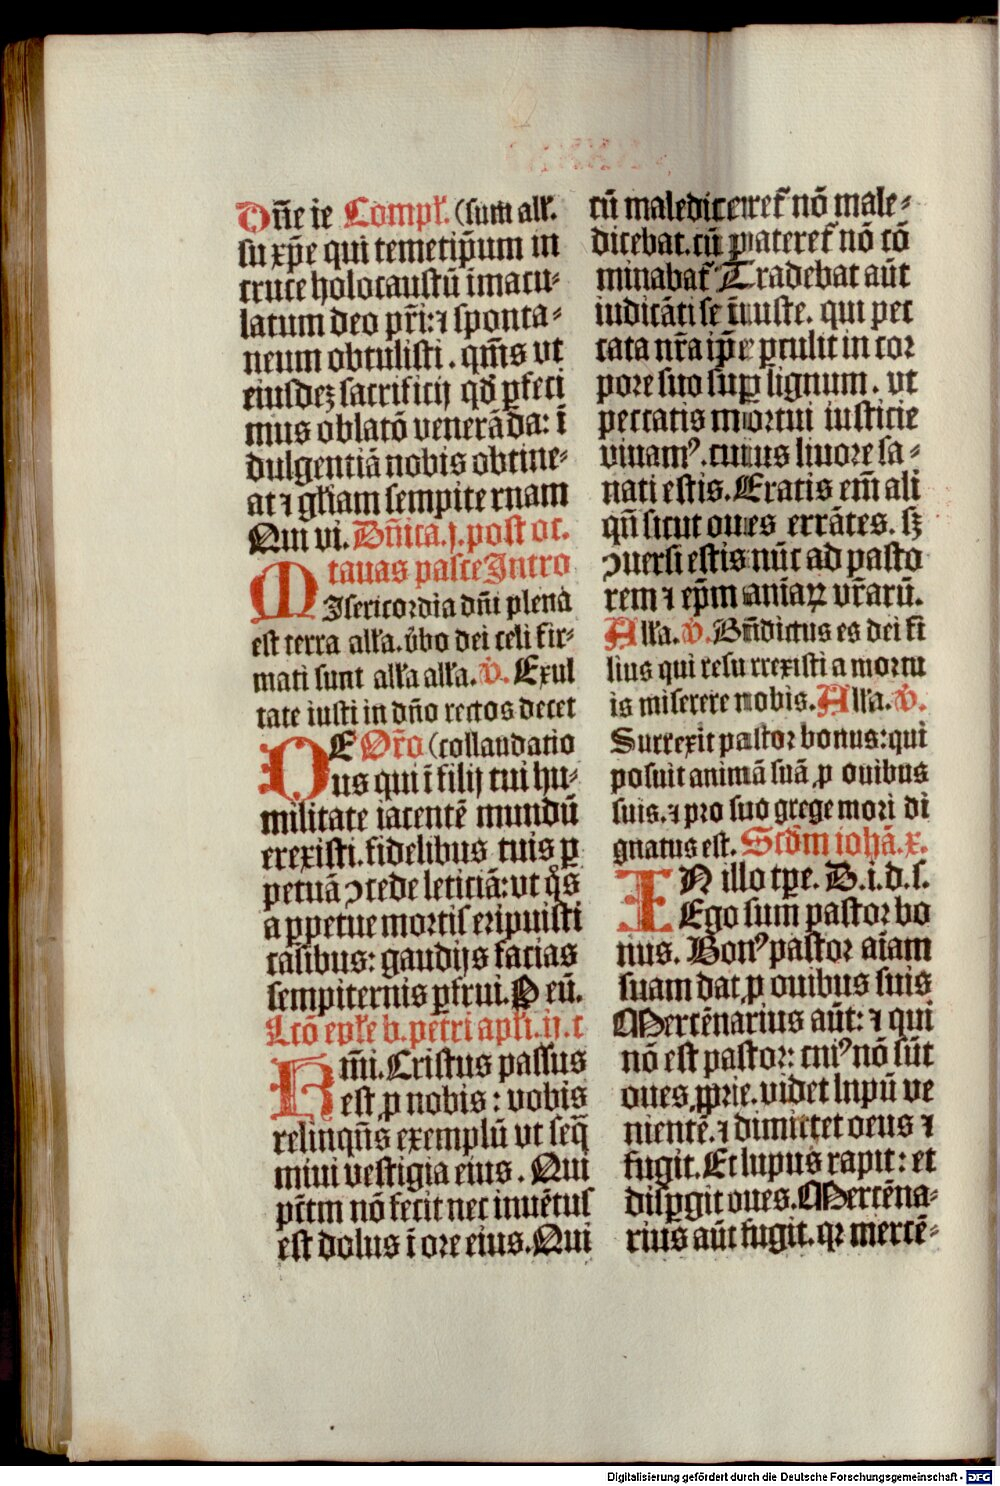 Dn̄e ie Compƚ. (sum alƚ.
su xp̄e qui temetip̄um in
cruce holocaustū īmacu-
latum deo pr̄i: ⁊ sponta-
neum obtulisti. qm̄s vt
eiusdeꝫ sacrificij qd̕ ꝑfeci
mus oblatō venerāda: ī
dulgentiā nobis obtine-
at ⁊ gƚiam sempite rnam
Qui vi. Dn̄ica. j. post oc.
tauas pasce Intro
MIsericordia dn̄i plena
est terra alƚa. v̓bo dei celi fir-
mati sunt alƚa alƚa. v̓. Exul
tate iusti in dn̄o rectos decet
DE Or̄o (collaudatio
us qui ī filij tui hu-
militate iacentē mundū
erexisti. fidelibus tuis ꝑ
petuā ꝯcede leticiā: vt qͦs
a ꝑpetue mortis eripuisti
casibus: gaudijs facias
sempiternis ꝑfrui. P eū.
Lcō epƚe b. petri apƚi. ij. c
Km̄i. Cristus passus
est ꝓ nobis: vobis
relinqn̄s exemplū vt seq̄
mini vestigia eius. Qui
pc̄tm nō fecit nec inuētus
est dolus ī ore eius. Qui
cū malediceretr̓ nō male-
dicebat. cū pateretr̓ nō cō
minabatr̓ Tradebat aūt
iudicāti se īiuste. qui pec
cata nr̄a ip̄e ꝑtulit in cor
pore suo suꝑ lignum. vt
peccatis mortui iusticie
viuamꝰ. cuius liuore sa-
nati estis. Eratis em̄ ali
qn̄ sicut oues errātes. sꝫ
ꝯuersi estis nūc ad pasto
rem ⁊ ep̄m aniaꝝ vr̄arū.
Alƚa. v̓. Bn̄dictus es dei fi
lius qui resu rrexisti a mortu
is miserere nobis. Alƚa. v̓.
Surrexit pastor bonus: qui
posuit animā suā ꝓ ouibus
suis. ⁊ pro suo grege mori di
gnatus est. Scd̄m iohā. x.
IN illo tp̄e. D. i. d. s.
Ego sum pastor bo
nus. Bonꝰ pastor aīam
suam dat ꝓ ouibus suis
Mercēnarius aūt: ⁊ qui
nō est pastor: cuiꝰ nō sūt
oues ꝓprie. videt lupū ve
nientē. ⁊ dimittet oeus ⁊
fugit. Et lupus rapit: et
disꝑgit oues. Mercēna-
rius aūt fugit. qꝛ mercē-
Digitalisierung gefördert durch die Deutsche Forschungsgemeinschaft - DFG